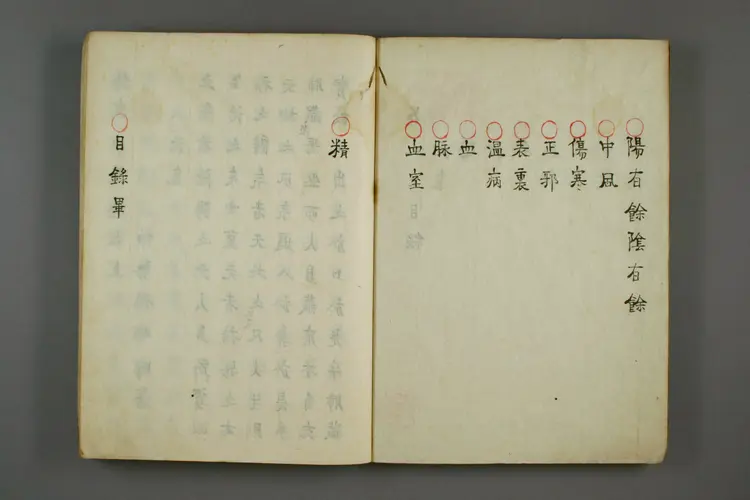 陽有餘陰有餘
中風
傷寒
正邪
表裏
温病
血
脉
血室
精
目錄畢